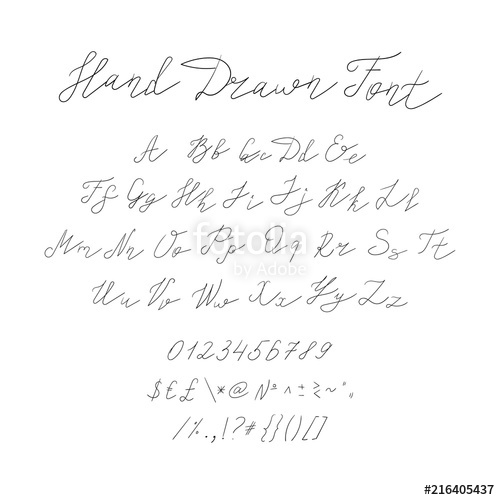 Hand Drawn Font
A Bb Cc Dd Ee
Ff Gg Hh Ii Jj Kk Ll
Mm Nn Oo Pp Qq Rr Ss Tt
Uu Vv Ww Xx Yy Zz
0123456789
$€£\*@№^±≥≤~"„
/%.,!?#{}()[]
fotolia
by Adobe
#216405437